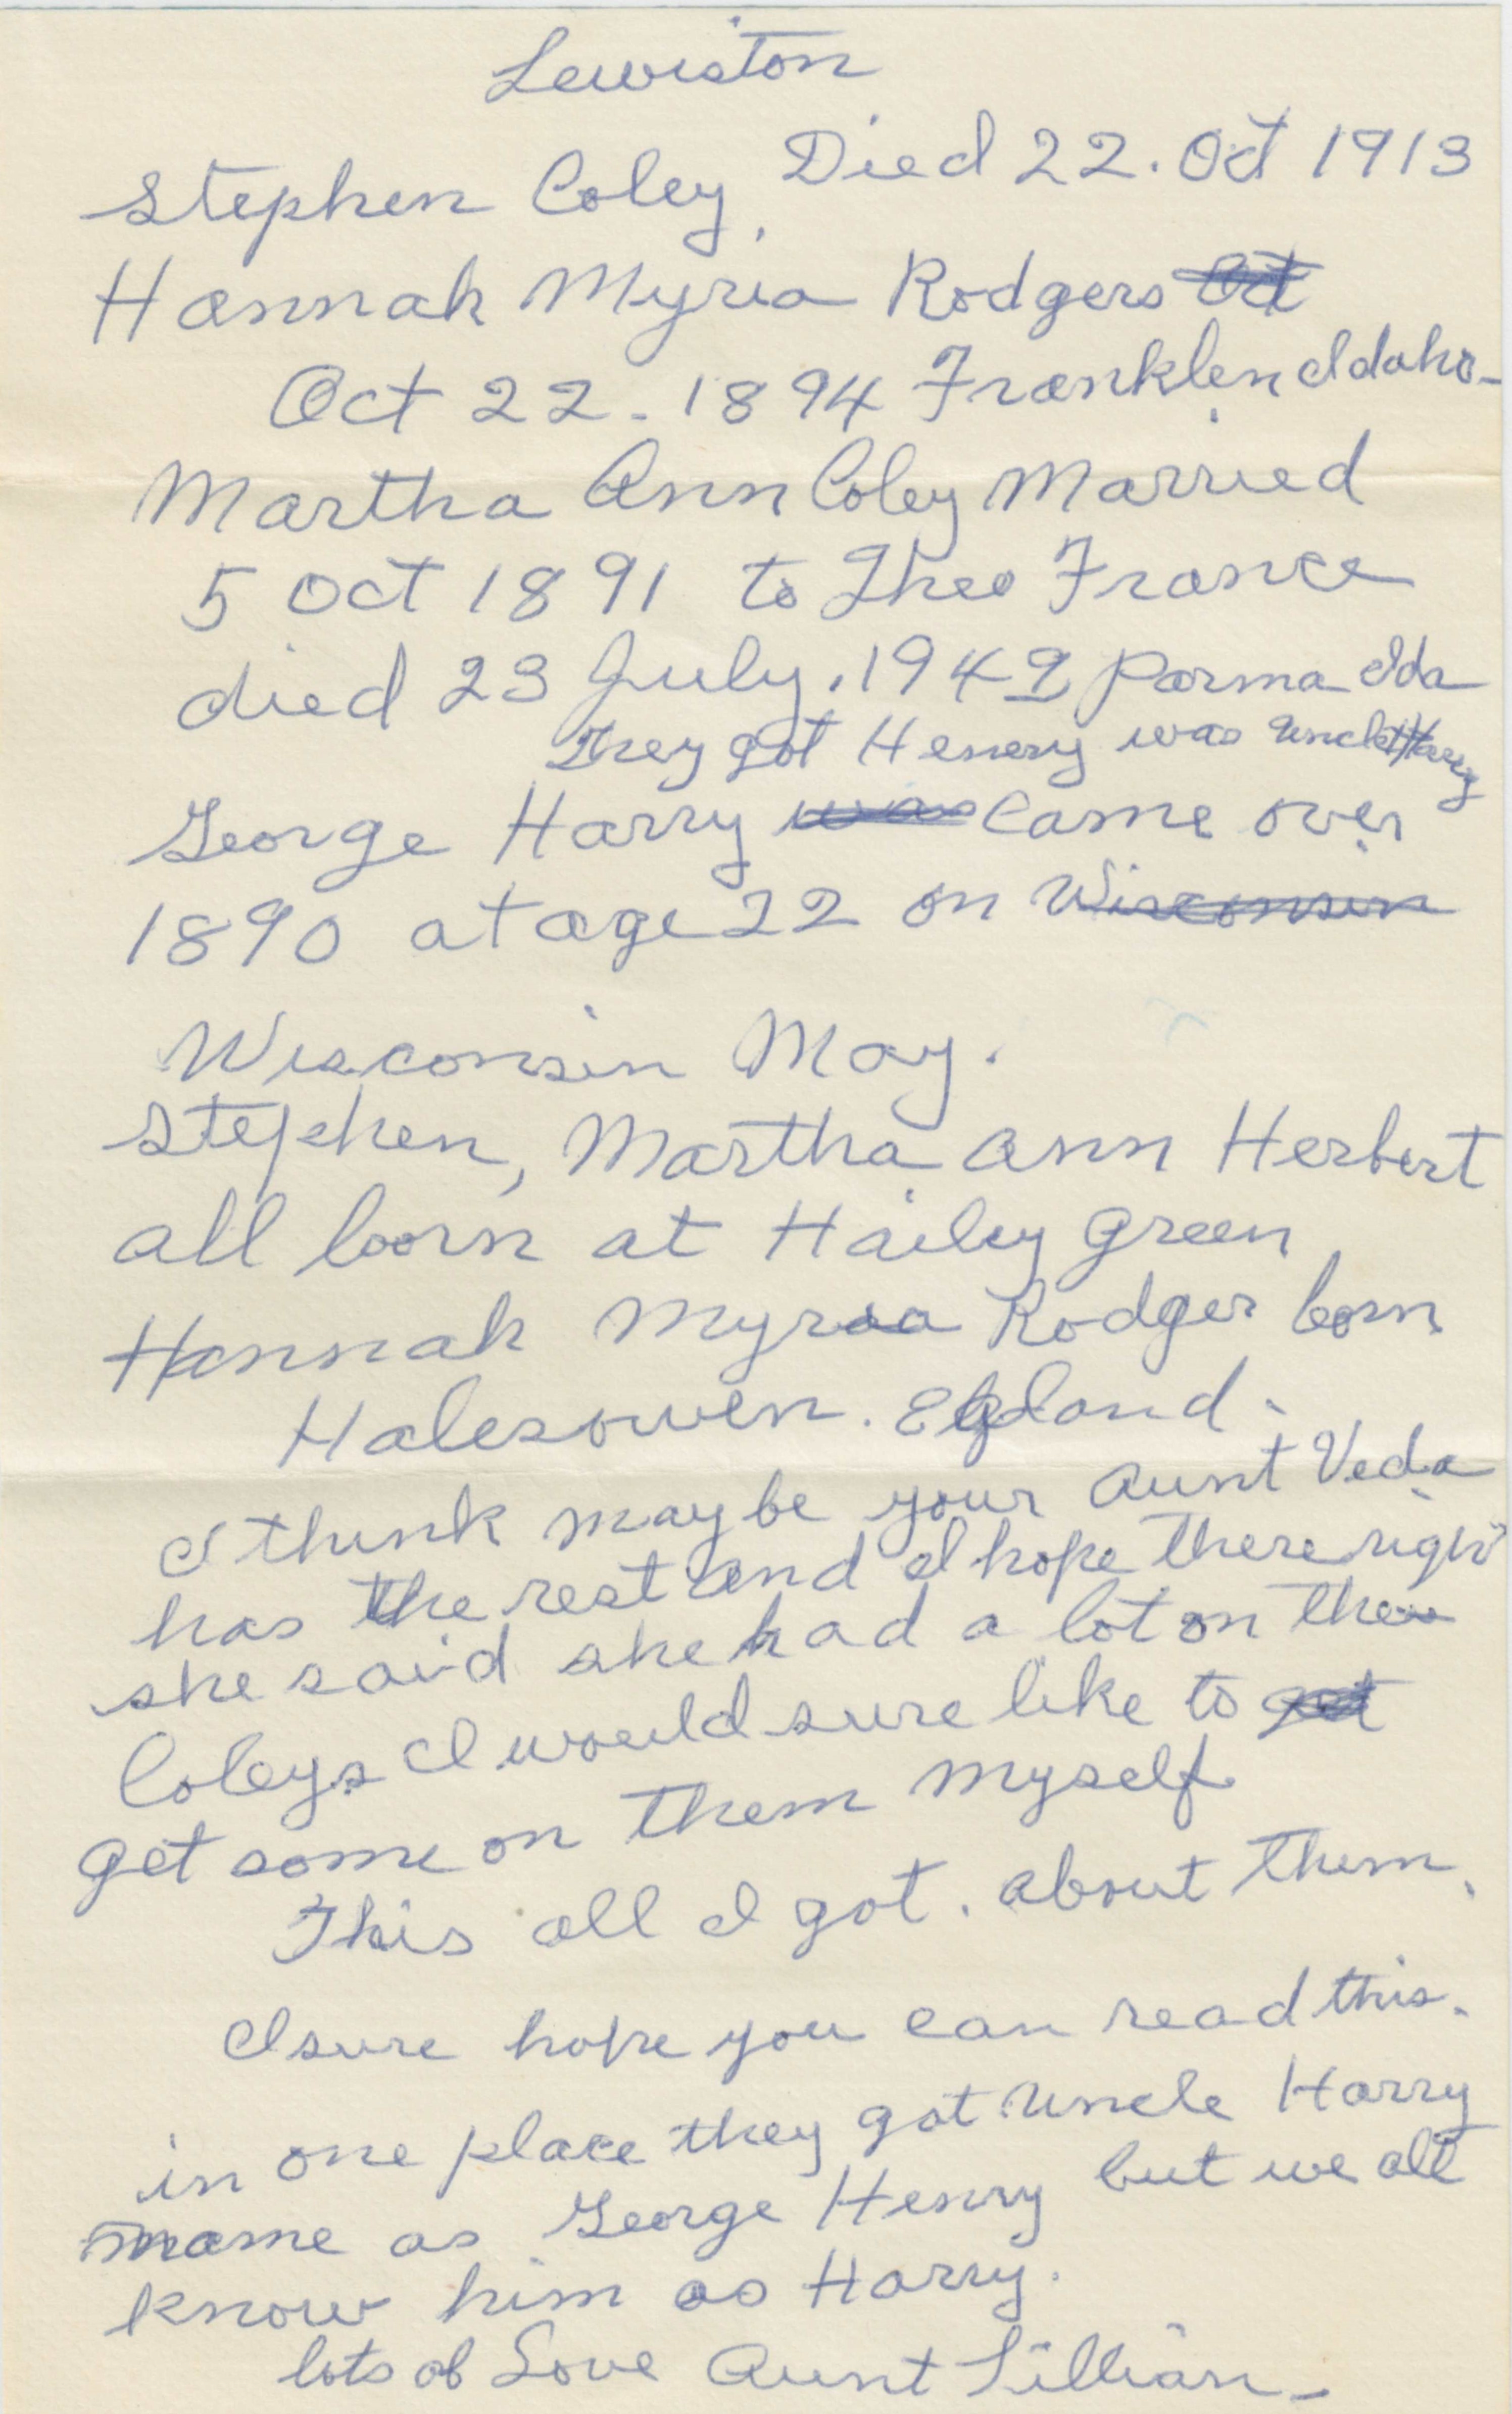 Lewiston
Stephen Coley, Died 22. Oct 1913
Hannah Myria Rodgers Oct
Oct 22. 1894 Franklen Idaho-
Martha Ann Coley Married
5 Oct 1891 to Theo France
died 23 July, 1949 Parma Ida
They got Henery was Uncle Harry
George Harry was Came over
1890 at age 22 on Wisconsin
Wisconsin May.
Stephen, Martha Ann Herbert
all born at Hailey Green
Hannah Myria Rodger born
Halesowen. Egland.
I think maybe your Aunt Veda
has the rest and I hope there right
she said she had a lot on the
Coleys I would sure like to get
get some on them myself
This all I got. about them.
I sure hope you can read this.
in one place they got Uncle Harry
name as George Henry but we all
know him as Harry.
lots of Love Aunt Lillian-